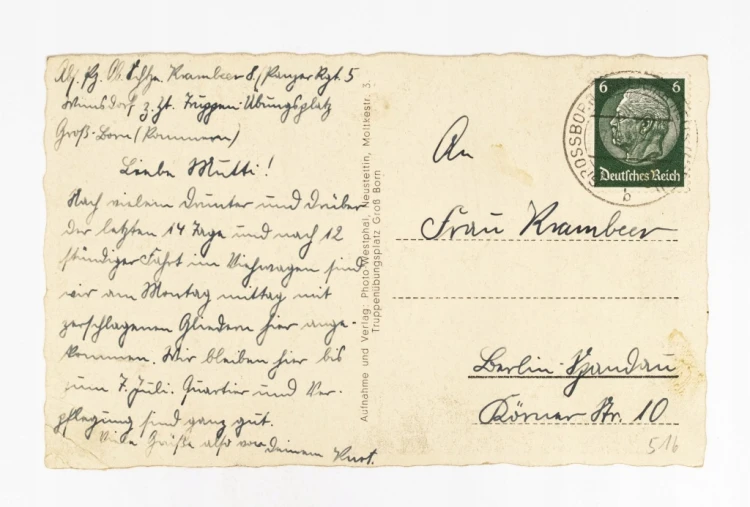 Abs. Pz. Ob. Schtz. Krambeer 8./Panzer Rgt. 5
Wünsdorf z. Zt. Truppen-Übungsplatz
Groß-Born (Pommern)
Liebe Mutti!
Nach vielem Drunter und Drüber
der letzten 14 Tage und nach 12
stündiger Fahrt im Viehwagen sind
wir am Montag mittag mit
zerschlagenen Gliedern hier ange-
kommen. Wir bleiben hier bis
zum 7. Juli. Quartier und Ver-
pflegung sind ganz gut.
Viele Grüße also von deinem Kurt.
Aufnahme und Verlag: Photo-Westphal, Neustettin, Moltkestr. 3.
Truppenübungsplatz Groß Born
6 6
Deutsches Reich
GROSSBORN
b
An
Frau Krambeer
Berlin-Spandau
Körner Str. 10
516